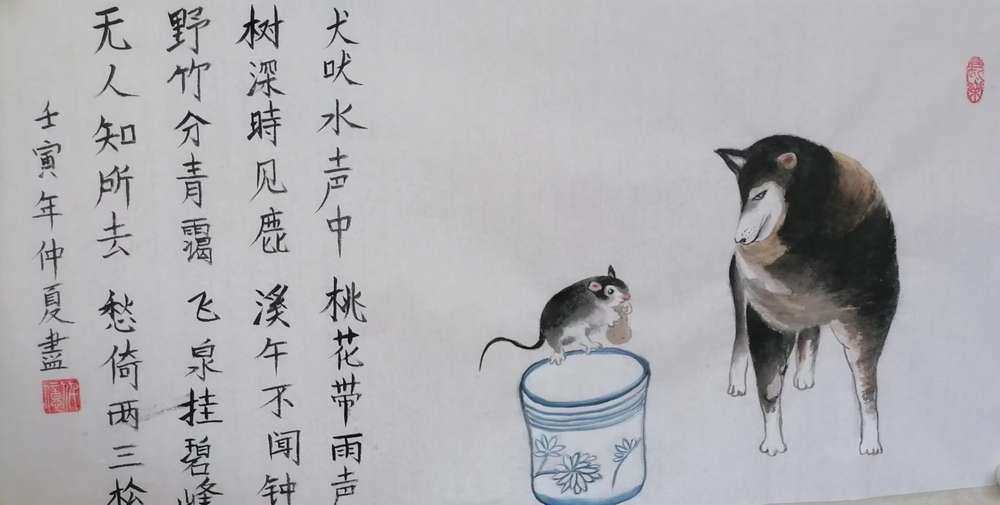 犬吠水声中 桃花带雨声
树深時见鹿 溪午不闻钟
野竹分青霭 飞泉挂碧峰
无人知所去 愁倚两三松
壬寅年仲夏盡